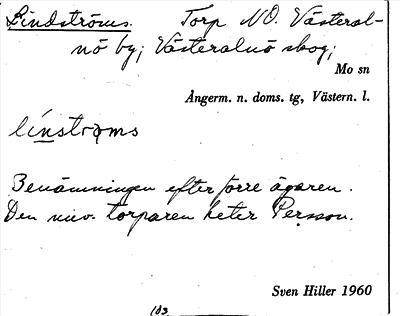 Lindströms. Torp NO. Västeral-
nö by; Västeralnö skog;
Mo sn
Ångerm. n. doms. tg, Västern. l.
línstroms
Benämningen efter förre ägaren.
Den nuv. torparen heter Persson.
Sven Hiller 1960